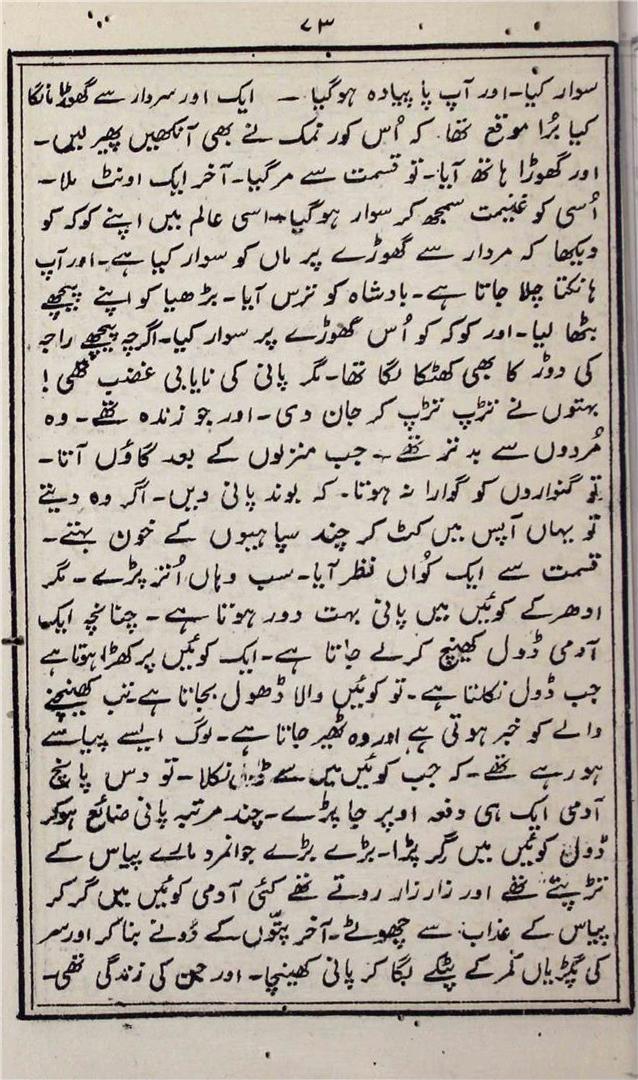 ۷۳
سوار کیا۔ اور آپ پا پیادہ ہوگیا ۔ ایک اور سردار سے گھوڑا مانگا
کیا بُرا موقع تھا۔ کہ اُس کور نمک نے بھی آنکھیں پھیر لیں۔
اور گھوڑا ہاتھ آیا۔ تو قسمت سے مرگیا۔ آخر ایک اونٹ ملا۔
اُسی کو غنیمت سمجھ کر سوار ہوگیا۔ اسی عالم میں اپنے کوکہ کو
دیکھا کہ مردار سے گھوڑے پر ماں کو سوار کیا ہے۔ اور آپ
ہانکتا چلا جاتا ہے۔ بادشاہ کو ترس آیا۔ بڑھیا کو اپنے پیچھے
بٹھا لیا۔ اور کوکہ کو اُس گھوڑے پر سوار کیا۔ اگرچہ پیچھے راجہ
کی دوڑ کا بھی کھٹکا لگا تھا۔ مگر پانی کی نایابی غضب تھی !
بہتوں نے تڑپ تڑپ کر جان دی۔ اور جو زندہ تھے۔ وہ
مُردوں سے بدتر تھے ۔ جب منزلوں کے بعد گاؤں آتا۔
تو گنواروں کو گوارا نہ ہوتا۔ کہ بوند پانی دیں۔ اگر وہ دیتے
تو یہاں آپس میں کٹ کر چند سپاہیوں کے خون بہتے۔
قسمت سے ایک کُواں نظر آیا۔ سب وہاں اُتر پڑے۔ مگر
ادھر کے کوئیں میں پانی بہت دور ہوتا ہے۔ چنانچہ ایک
آدمی ڈول کھینچ کر لے جاتا ہے۔ ایک کوئیں پر کھڑا ہوتا ہے
جب ڈول نکلتا ہے۔ تو کوئیں والا ڈھول بجاتا ہے۔ تب کھینچنے
والے کو خبر ہوتی ہے اور وہ ٹھیر جاتا ہے۔ لوگ ایسے پیاسے
ہو رہے تھے۔ کہ جب کوئیں میں سے ڈول نکلا۔ تو دس پانچ
آدمی ایک ہی دفعہ اوپر جا پڑے۔ چند مرتبہ پانی ضائع ہوکر
ڈول کوئیں میں گر پڑا۔ بڑے بڑے جوانمرد مارے پیاس کے
تڑپتے تھے اور زار زار روتے تھے کئی آدمی کوئیں میں گر کر
پیاس کے عذاب سے چھوٹے۔ آخر پتّوں کے دَونے بنا کر اور سر
کی پگڑیاں کمر کے پٹکے لگا کر پانی کھینچا۔ اور جن کی زندگی تھی۔